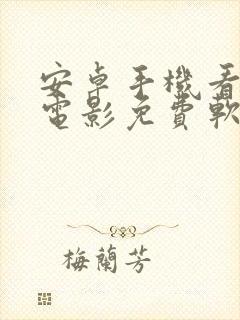 安卓手機看
電影免費軟
梅蘭芳